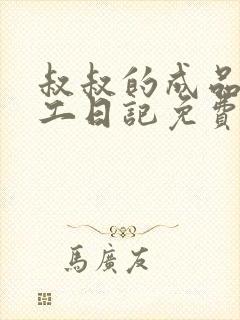 叔叔的成品
工日記免費
馬廣友